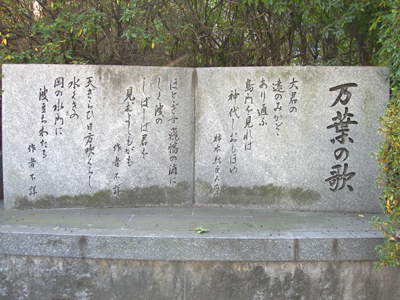 万葉の歌
大君の
遠のみかどと
あり通ふ
島門を見れば
神代しおもほゆ
柿本朝臣人麿
ほととぎす飛幡の浦に
しく波の
しばしば君を
見むよしもがも
作者不詳
天ぎらひ日方吹くらし
水ぐきの
岡の水門に
波立ちわたる
作者不詳